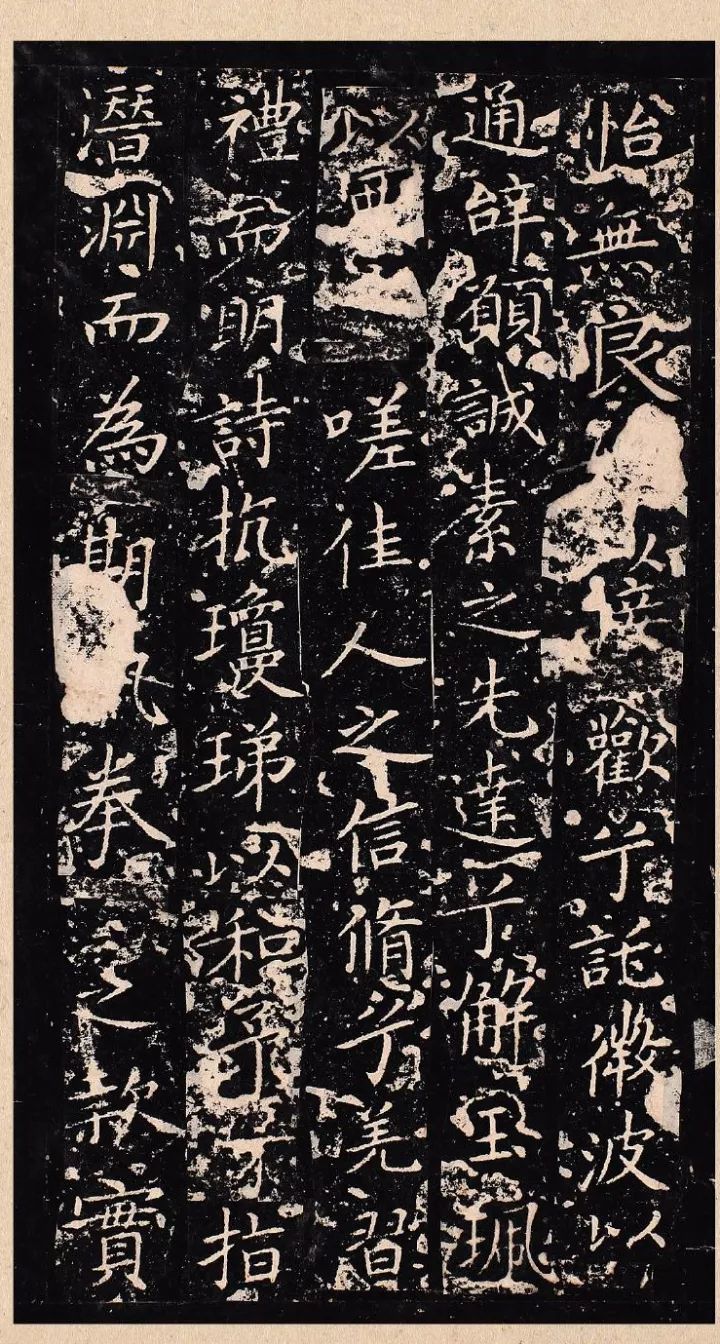 怡無良以接歡兮託微波以
通辝願誠素之先達兮解玉珮
以要嗟佳人之信脩兮羌習
禮而明詩抗瓊珶以和予兮指
潛淵而為期拳之款實